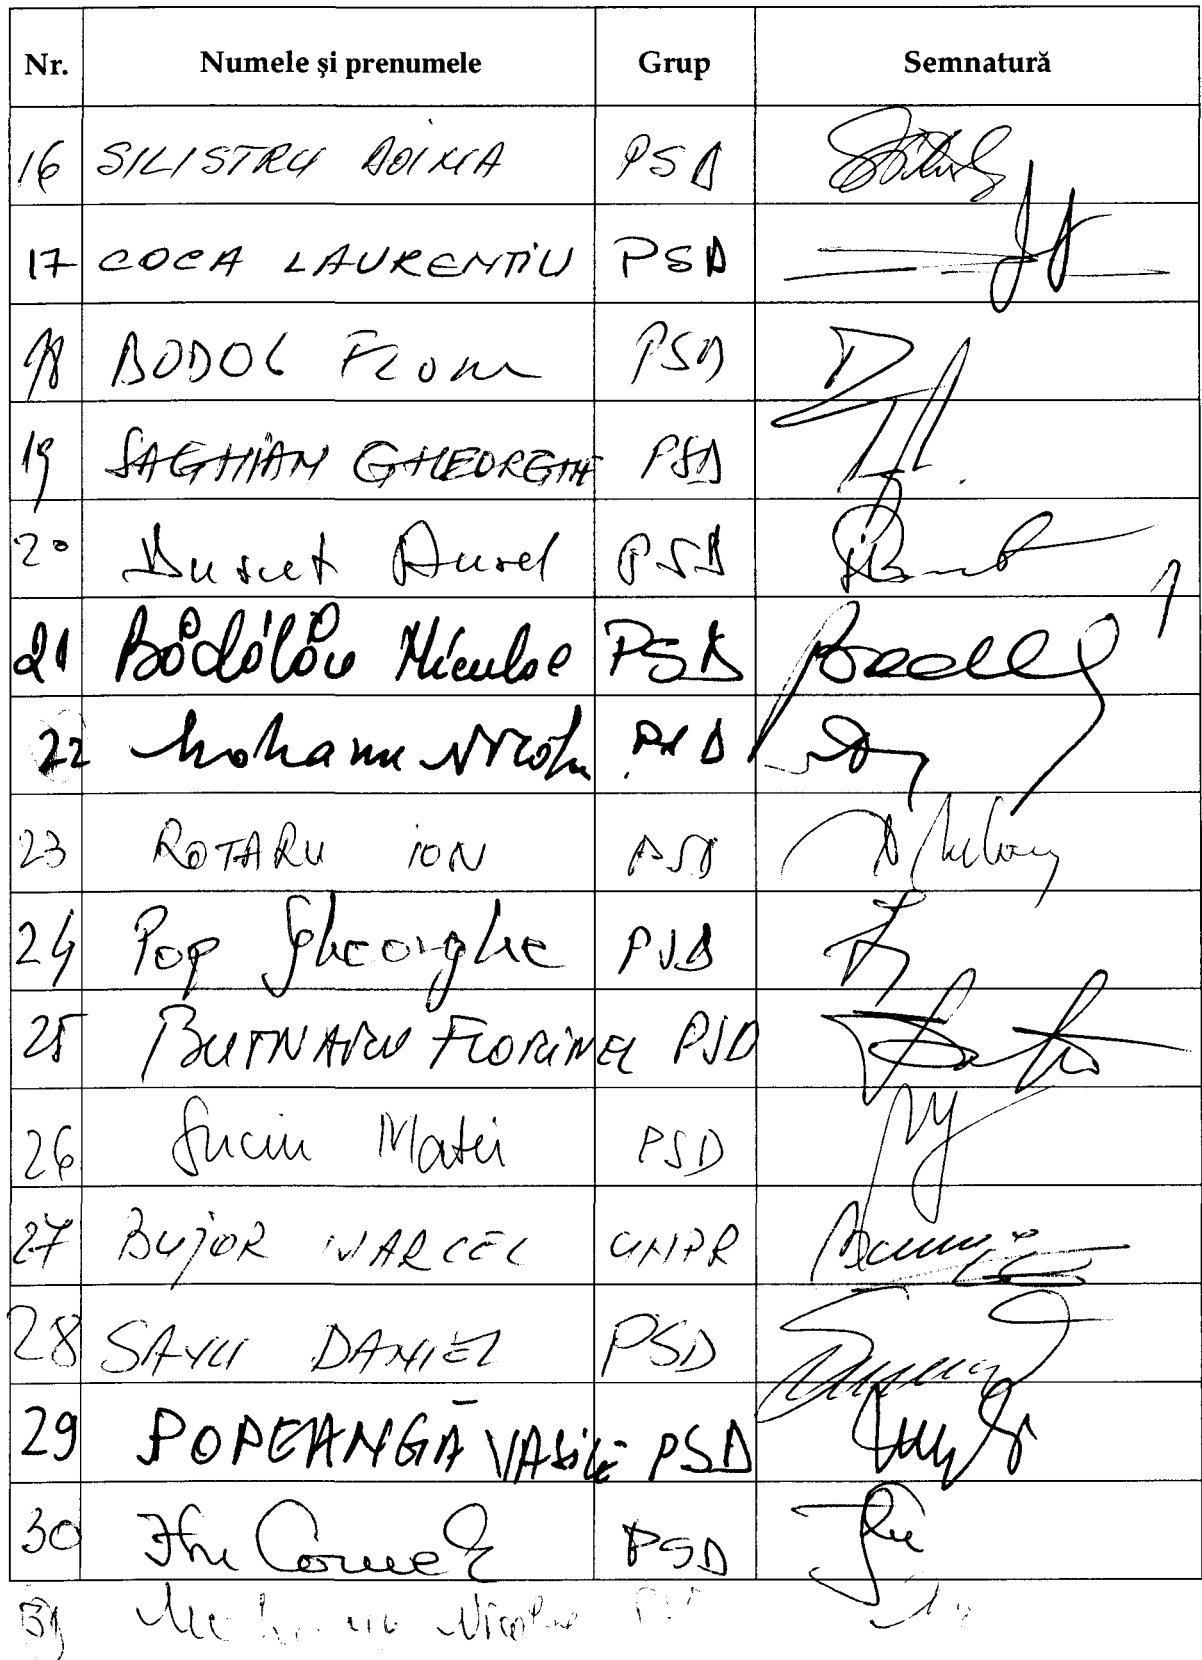 Nr. Numele şi prenumele Grup Semnatură
16 SILISTRU DOINA PSD
17 COCA LAURENTIU PSD
18 BODOG Florin PSD
19 SAGHIAN GHEORGHE PSD
20 Aurel PSD
21 Bădălău Niculae PSD
22 Mohanu Nicolae PSD
23 ROTARU ION PSD
24 Pop Gheorghe PSD
25 BUTNARU FLORINEL PSD
26 Suciu Matei PSD
27 BUJOR MARCEL UNPR
28 SAVU DANIEL PSD
29 POPEANGĂ VASILE PSD
30 Itu Cornel PSD
31 Nicolae